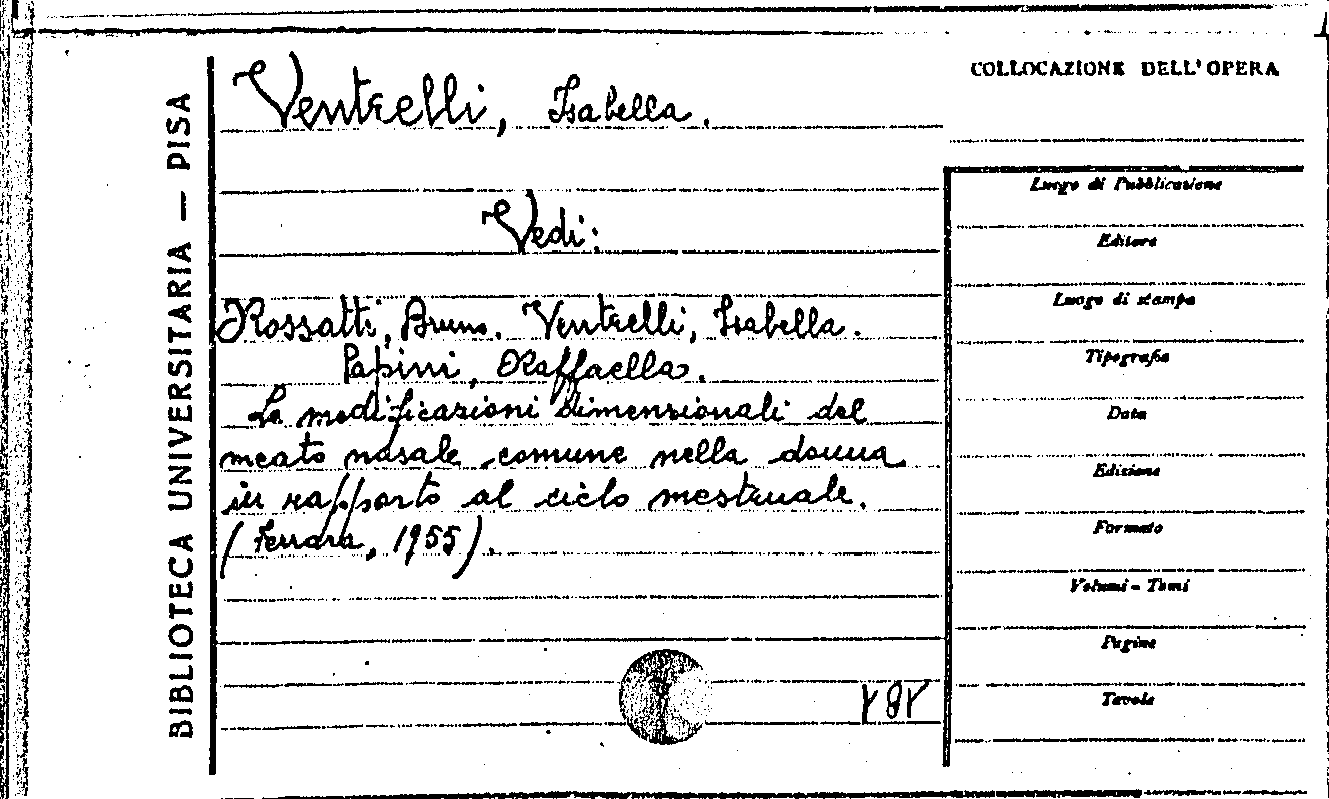 BIBLIOTECA UNIVERSITARIA — PISA
Ventrelli, Isabella.
Vedi:
Rossatti, Bruno. Ventrelli, Isabella.
Papini, Raffaella.
Le modificazioni dimensionali del
meato nasale comune nella donna
in rapporto al ciclo mestruale.
(Ferrara, 1955).
COLLOCAZIONE DELL'OPERA
Luogo di Pubblicazione
Editore
Luogo di stampa
Tipografia
Data
Edizione
Formato
Volumi - Tomi
Pagine
Tavole